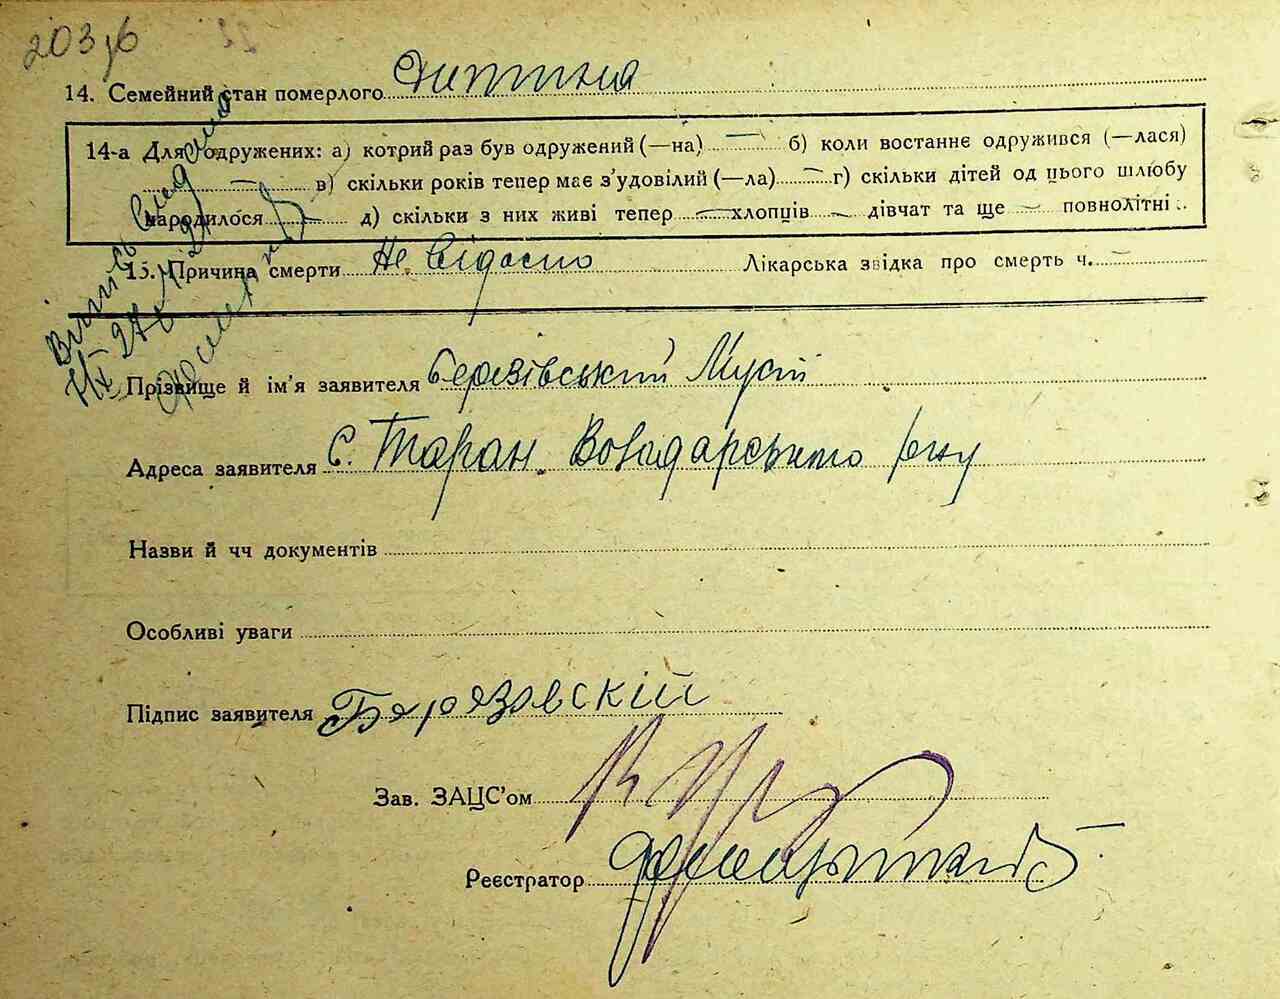 203
14. Семейний стан померлого Дитина
14-а Для одружених: а) котрий раз був одружений (—на) — б) коли востаннє одружився (—лася)
— в) скільки років тепер має з’удовілий (—ла) — г) скільки дітей од цього шлюбу
народилося — д) скільки з них живі тепер — хлопців — дівчат та ще — повнолітні
15. Причина смерти Не відомо Лікарська звідка про смерть ч. —
Прізвище й ім’я заявителя Березівський Мусій
Адреса заявителя С. Таран Володарського р-ну
Назви й чч документів
Особливі уваги
Підпис заявителя Березовскій
Зав. ЗАЦС’ом
Реєстратор